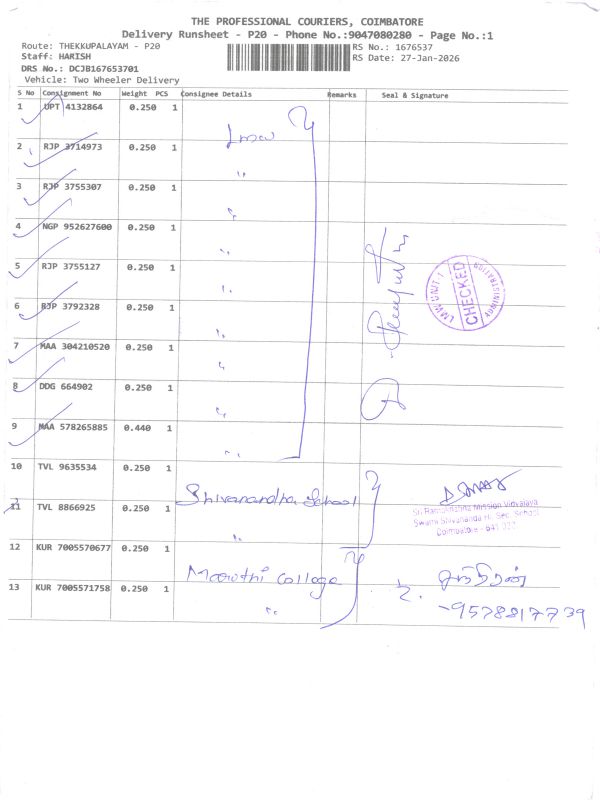 THE PROFESSIONAL COURIERS, COIMBATORE
Delivery Runsheet - P20 - Phone No.:9047080280 - Page No.:1
Route: THEKKUPALAYAM - P20
RS No.: 1676537
Staff: HARISH
RS Date: 27-Jan-2026
DRS No.: DCJB167653701
Vehicle: Two Wheeler Delivery
S No Consignment No Weight PCS Consignee Details Remarks Seal & Signature
1 UPT 4132864 0.250 1
2 RJP 3714973 0.250 1
3 RJP 3755307 0.250 1
4 NGP 952627600 0.250 1
5 RJP 3755127 0.250 1
6 RJP 3792328 0.250 1
CHECKED
7 MAA 304210520 0.250 1
8 DDG 664902 0.250 1
9 MAA 578265885 0.440 1
10 TVL 9635534 0.250 1 Shivanandha School
Sri Ramakrishna Mission Vidyalaya
Swami Shivananda Hr. Sec. School
Coimbatore - 641 020
11 TVL 8866925 0.250 1 "
12 KUR 7005570677 0.250 1 Maruthi College
13 KUR 7005571758 0.250 1 "